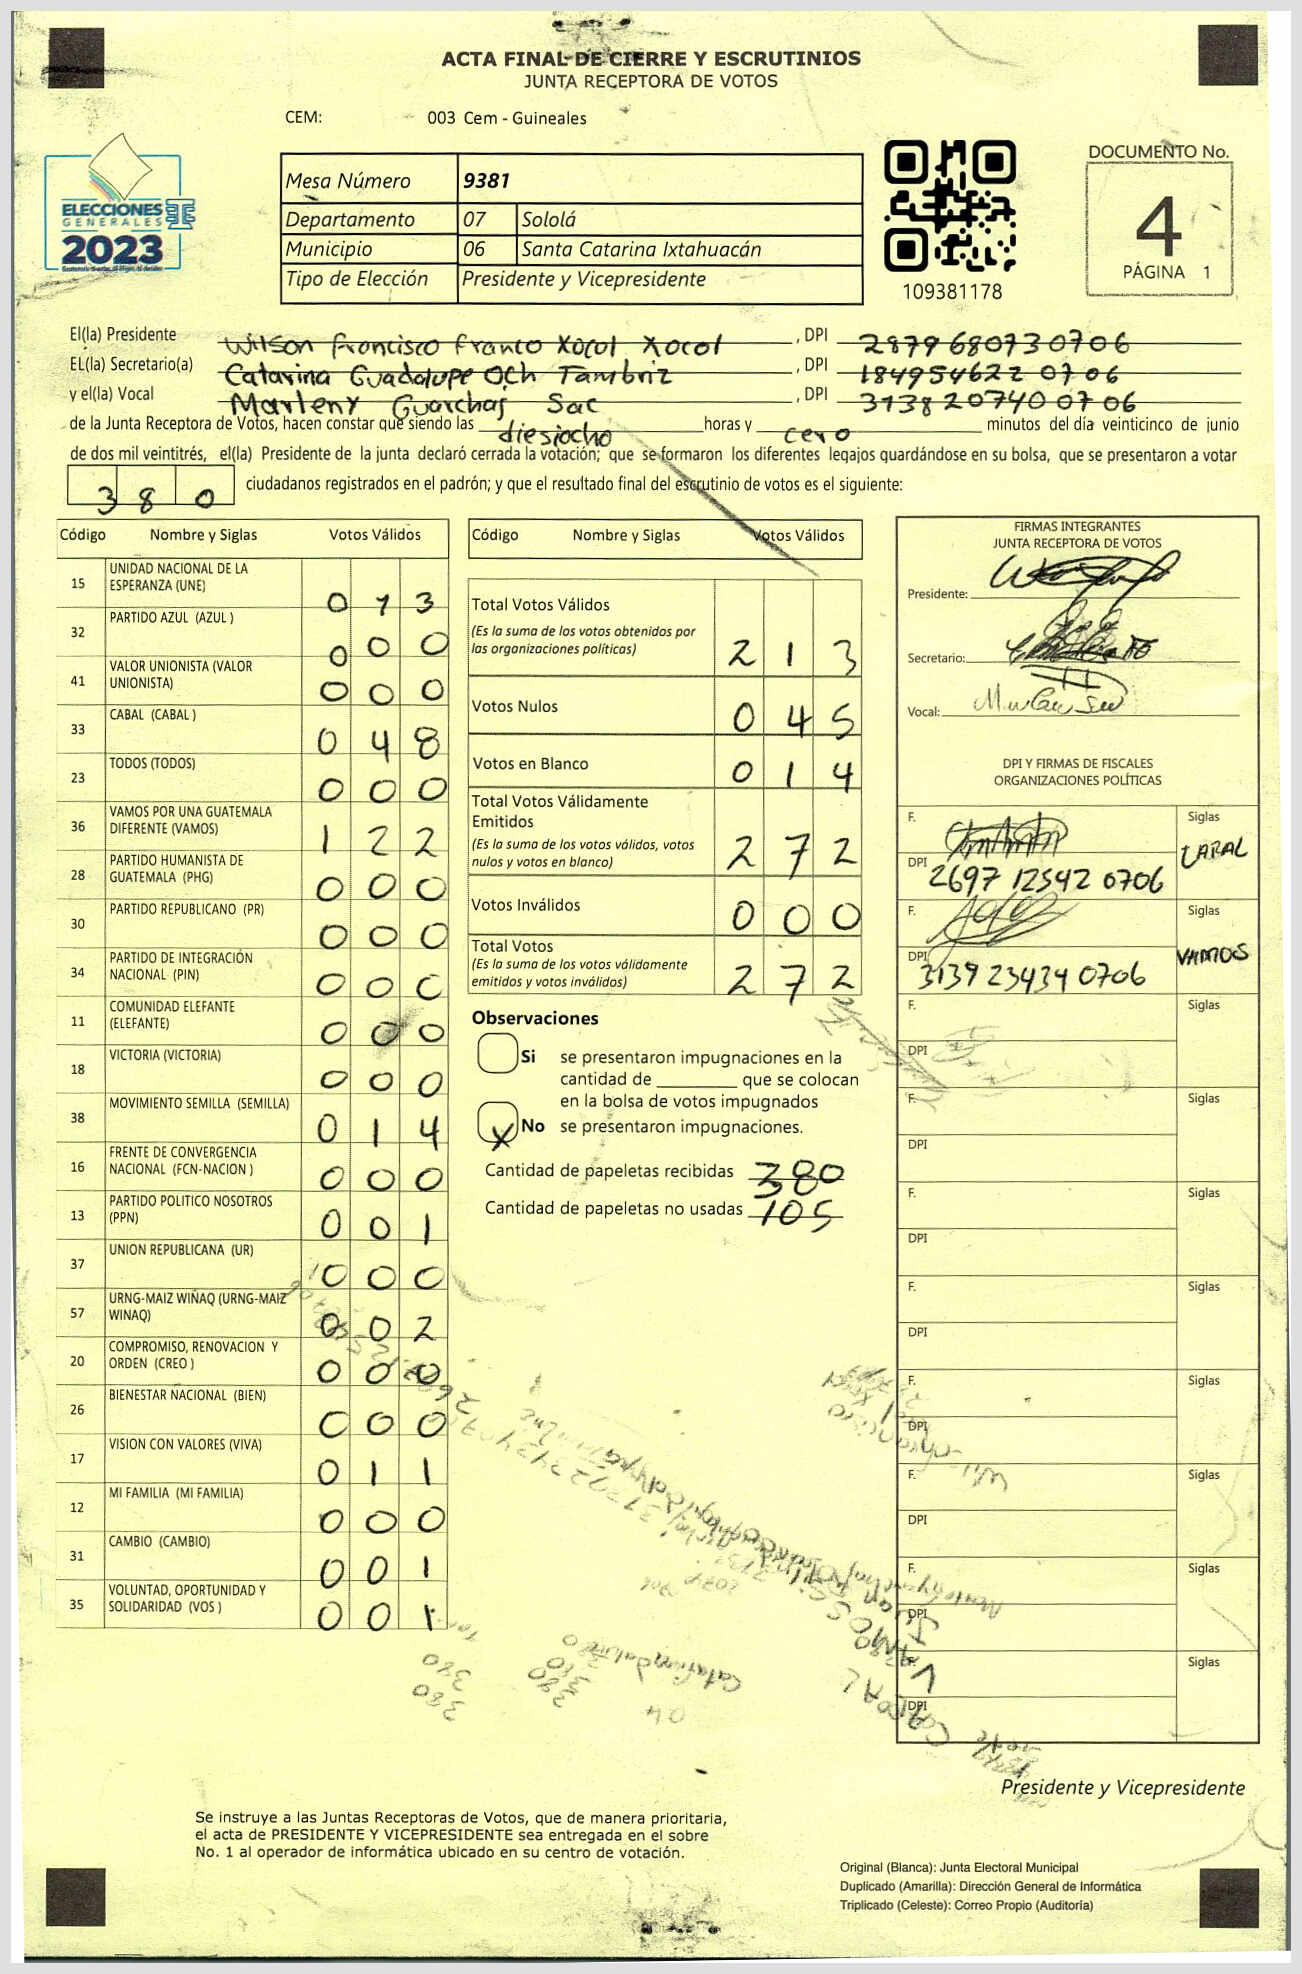 ACTA FINAL DE CIERRE Y ESCRUTINIOS
JUNTA RECEPTORA DE VOTOS
CEM: 003 Cem - Guineales
ELECCIONES
GENERALES
2023
Mesa Número 9381
Departamento 07 Sololá
Municipio 06 Santa Catarina Ixtahuacán
Tipo de Elección Presidente y Vicepresidente
109381178
DOCUMENTO No.
4
PÁGINA 1
El(la) Presidente Wilson Francisco Franco Xocol Xocol, DPI 2879 68073 0706
EL(la) Secretario(a) Catarina Guadalupe Och Tambriz, DPI 184954622 0706
y el(la) Vocal Marleny Guarchaj Sac, DPI 3138 20740 0706
de la Junta Receptora de Votos, hacen constar que siendo las diesiocho horas y cero minutos del día veinticinco de junio
de dos mil veintitrés, el(la) Presidente de la junta declaró cerrada la votación; que se formaron los diferentes legajos guardándose en su bolsa, que se presentaron a votar
380 ciudadanos registrados en el padrón; y que el resultado final del escrutinio de votos es el siguiente:
Código Nombre y Siglas Votos Válidos
15 UNIDAD NACIONAL DE LA ESPERANZA (UNE) 013
32 PARTIDO AZUL (AZUL ) 000
41 VALOR UNIONISTA (VALOR UNIONISTA) 000
33 CABAL (CABAL ) 048
23 TODOS (TODOS) 000
36 VAMOS POR UNA GUATEMALA DIFERENTE (VAMOS) 122
28 PARTIDO HUMANISTA DE GUATEMALA (PHG) 000
30 PARTIDO REPUBLICANO (PR) 000
34 PARTIDO DE INTEGRACIÓN NACIONAL (PIN) 000
11 COMUNIDAD ELEFANTE (ELEFANTE) 000
18 VICTORIA (VICTORIA) 000
38 MOVIMIENTO SEMILLA (SEMILLA) 014
16 FRENTE DE CONVERGENCIA NACIONAL (FCN-NACION ) 000
13 PARTIDO POLITICO NOSOTROS (PPN) 001
37 UNION REPUBLICANA (UR) 000
57 URNG-MAIZ WINAQ (URNG-MAIZ WINAQ) 002
20 COMPROMISO, RENOVACION Y ORDEN (CREO ) 000
26 BIENESTAR NACIONAL (BIEN) 000
17 VISION CON VALORES (VIVA) 011
12 MI FAMILIA (MI FAMILIA) 000
31 CAMBIO (CAMBIO) 001
35 VOLUNTAD, OPORTUNIDAD Y SOLIDARIDAD (VOS ) 001
Código Nombre y Siglas Votos Válidos
Total Votos Válidos
(Es la suma de los votos obtenidos por
las organizaciones políticas) 213
Votos Nulos 045
Votos en Blanco 014
Total Votos Válidamente
Emitidos
(Es la suma de los votos válidos, votos
nulos y votos en blanco) 272
Votos Inválidos 000
Total Votos
(Es la suma de los votos válidamente
emitidos y votos inválidos) 272
Observaciones
Si se presentaron impugnaciones en la
cantidad de ________ que se colocan
en la bolsa de votos impugnados
X No se presentaron impugnaciones.
Cantidad de papeletas recibidas 380
Cantidad de papeletas no usadas 105
FIRMAS INTEGRANTES
JUNTA RECEPTORA DE VOTOS
Presidente:
Secretario:
Vocal:
DPI Y FIRMAS DE FISCALES
ORGANIZACIONES POLÍTICAS
F. Siglas
CABAL
DPI 2697 12542 0706
F. Siglas
VAMOS
DPI 3139 23434 0706
F. Siglas
DPI
F. Siglas
DPI
F. Siglas
DPI
F. Siglas
DPI
F. Siglas
DPI
F. Siglas
DPI
F. Siglas
DPI
F. Siglas
DPI
Presidente y Vicepresidente
Se instruye a las Juntas Receptoras de Votos, que de manera prioritaria,
el acta de PRESIDENTE Y VICEPRESIDENTE sea entregada en el sobre
No. 1 al operador de informática ubicado en su centro de votación.
Original (Blanca): Junta Electoral Municipal
Duplicado (Amarilla): Dirección General de Informática
Triplicado (Celeste): Correo Propio (Auditoría)